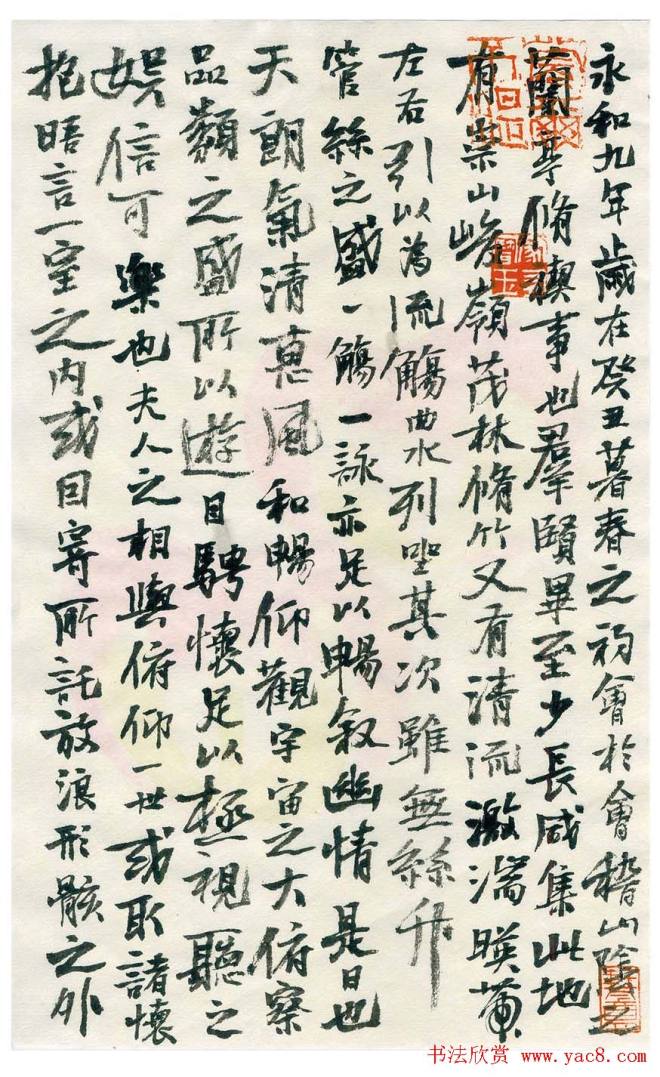 永和九年歲在癸丑暮春之初會於會稽山陰之
蘭亭脩禊事也羣賢畢至少長咸集此地
有崇山峻嶺茂林脩竹又有清流激湍暎帶
左右引以為流觴曲水列坐其次雖無絲竹
管絲之盛一觴一詠亦足以暢叙幽情是日也
天朗氣清惠風和暢仰觀宇宙之大俯察
品類之盛所以遊目騁懷足以極視聽之
娛信可樂也夫人之相與俯仰一世或取諸懷
抱晤言一室之內或因寄所託放浪形骸之外
书法欣赏 www.yac8.com